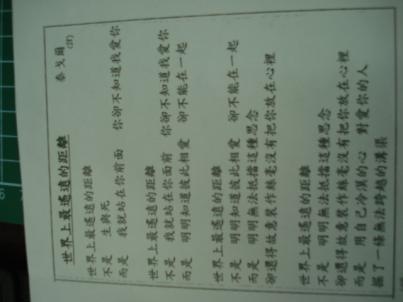 世界上最遙遠的距離
泰戈爾
世界上最遙遠的距離
不是 生與死
而是 我就站在你面前 你卻不知道我愛你
世界上最遙遠的距離
不是 我就站在你面前 你卻不知道我愛你
而是 明明知道彼此相愛 卻不能在一起
世界上最遙遠的距離
不是 明明知道彼此相愛 卻不能在一起
而是 明明無法抵擋這種思念
卻還得故意裝作絲毫沒有把你放在心裡
世界上最遙遠的距離
不是 明明無法抵擋這種思念
卻還得故意裝作絲毫沒有把你放在心裡
而是 用自己冷漠的心 對愛你的人
掘了一條無法跨越的溝渠